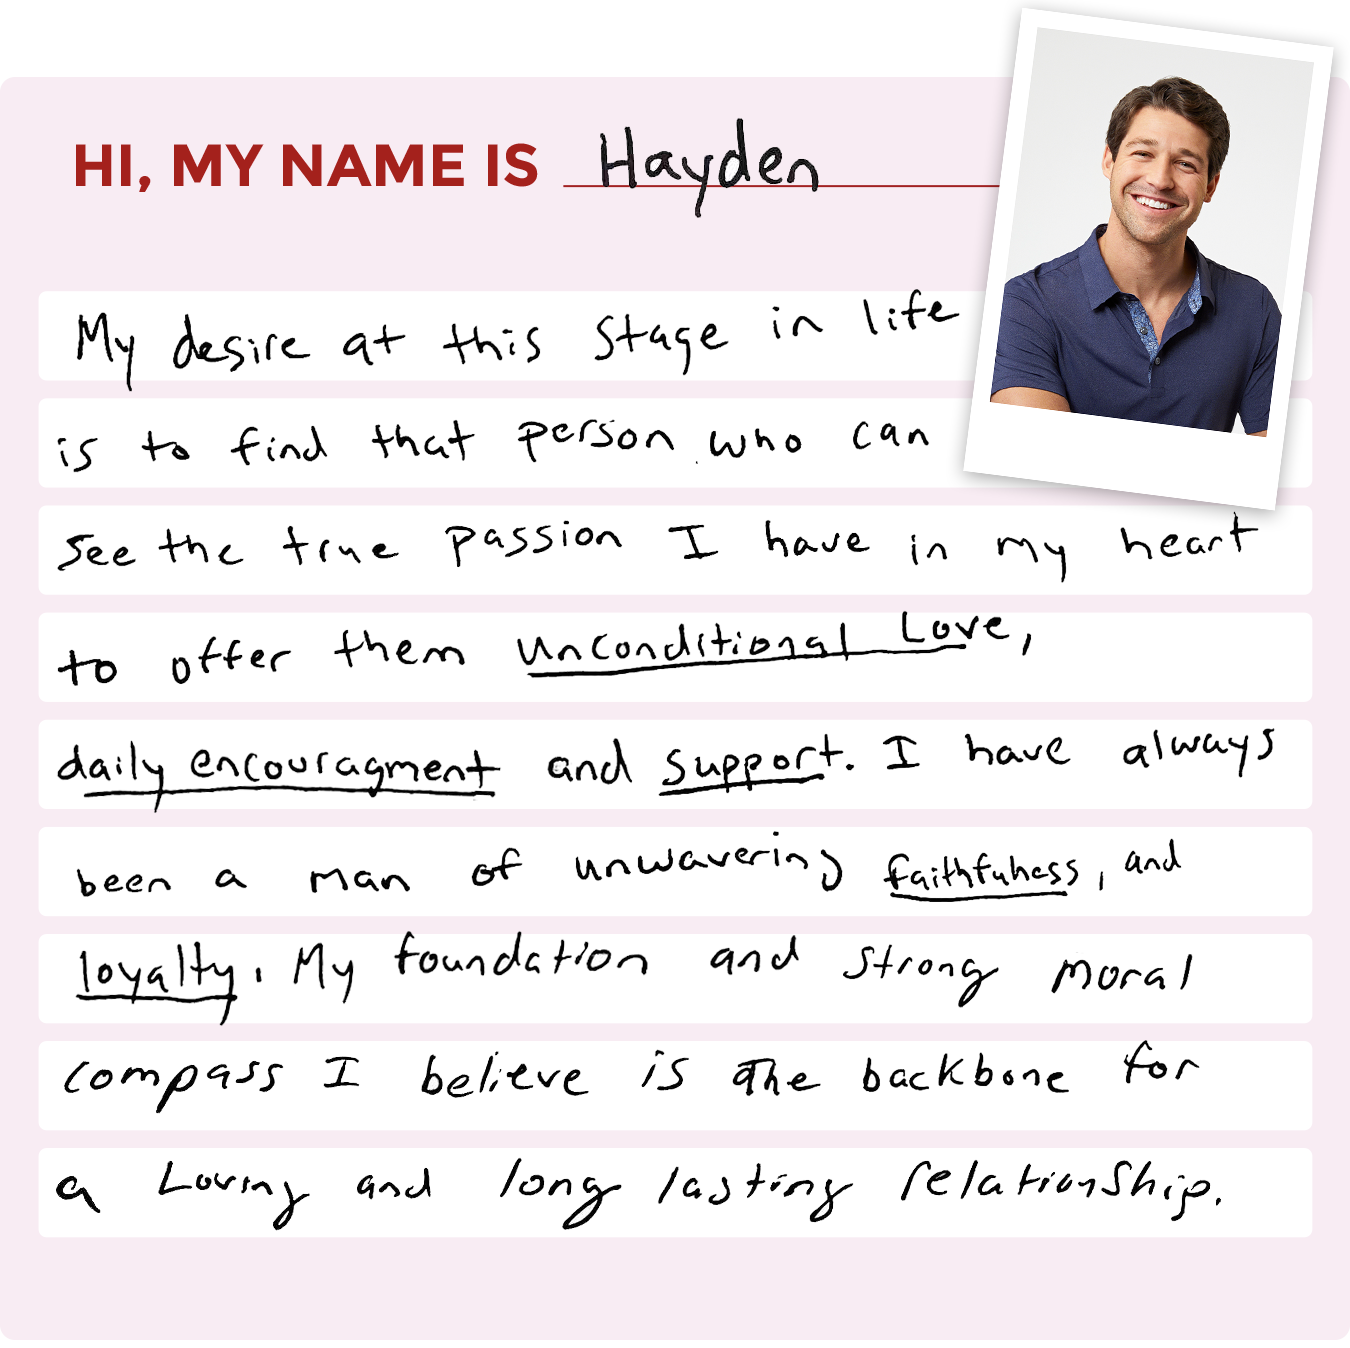 HI, MY NAME IS Hayden
My desire at this stage in life
is to find that person who can
see the true passion I have in my heart
to offer them unconditional Love,
daily encouragment and support. I have always
been a man of unwavering faithfulness, and
loyalty. My foundation and strong moral
compass I believe is the backbone for
a Loving and long lasting relationship.